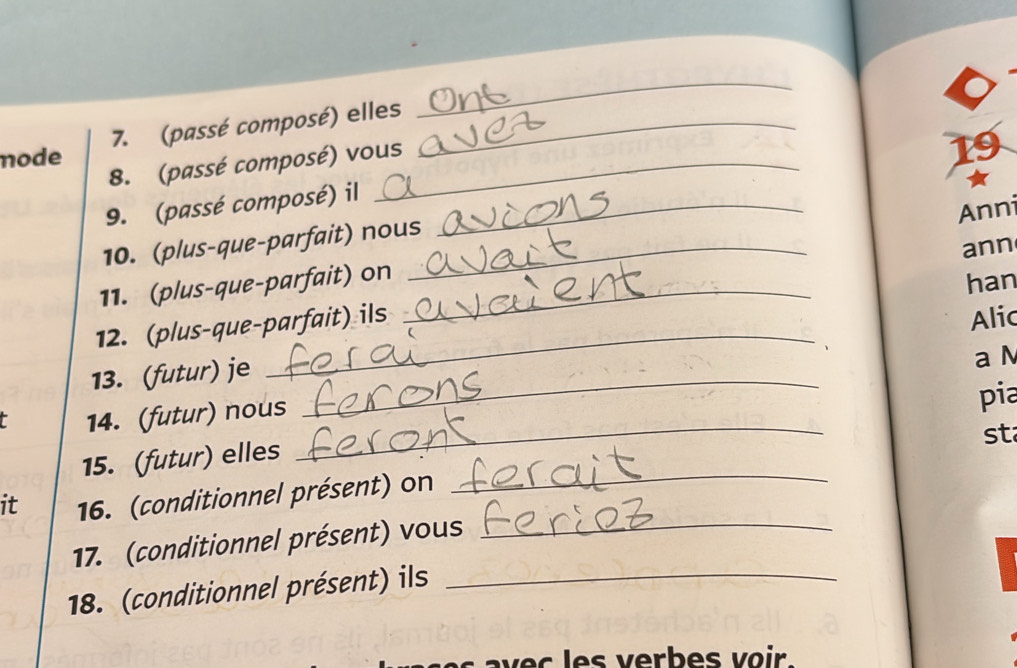 7. (passé composé) elles ont
mode
8. (passé composé) vous avez
9. (passé composé) il a
10. (plus-que-parfait) nous avions
11. (plus-que-parfait) on avait
12. (plus-que-parfait) ils avaient
13. (futur) je ferai
14. (futur) nous ferons
15. (futur) elles feront
16. (conditionnel présent) on ferait
it
17. (conditionnel présent) vous feriez
18. (conditionnel présent) ils
avec les verbes voir,
19
Anni
ann
han
Alic
a M
pia
sta